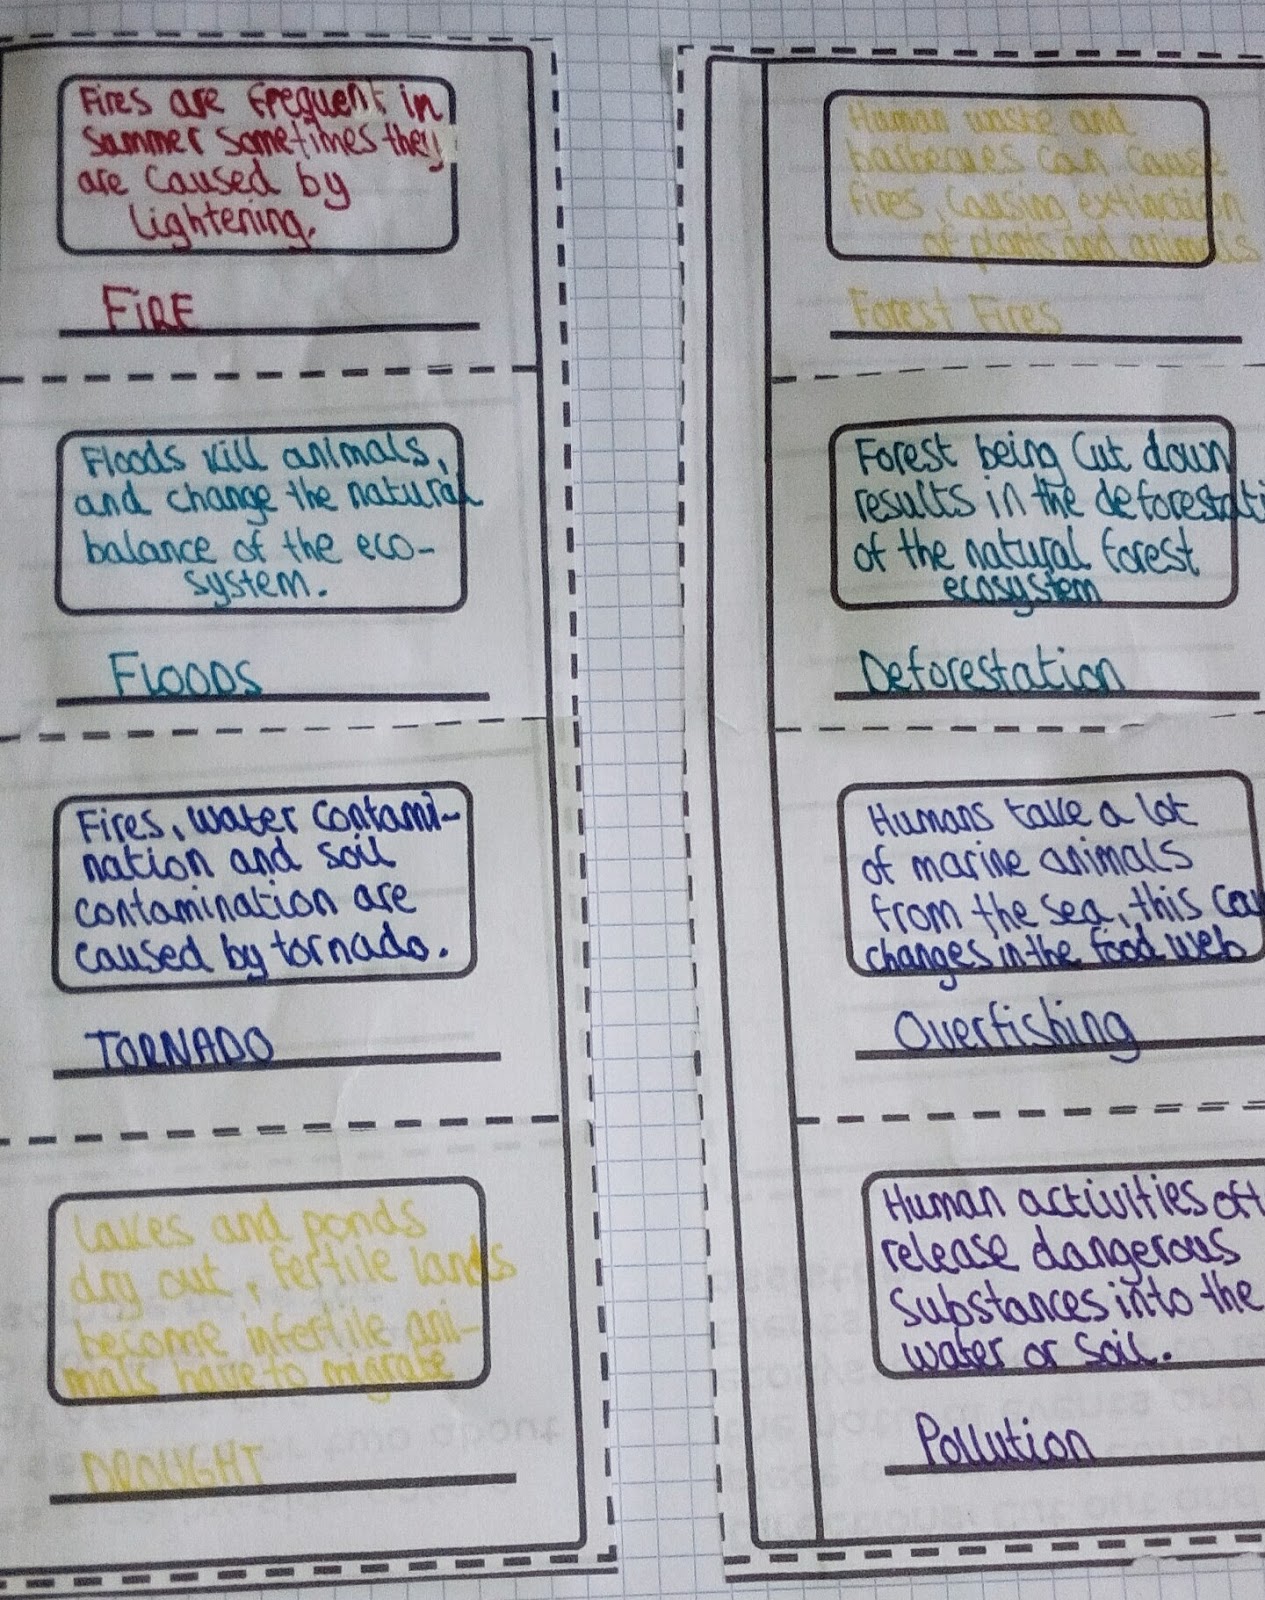 Fires are frequent in
summer sometimes they
are caused by
lightening.
FiRE
Floods kill animals,
and change the natural
balance of the eco-
system.
FLOODS
Fires, water contami-
nation and soil
contamination are
caused by tornado.
TORNADO
Lakes and ponds
dry out, fertile lands
become infertile ani-
mals have to migrate
DROUGHT
Human waste and
barbecues can cause
fires, causing extinction
of plants and animals
Forest Fires
Forest being cut down
results in the deforestati
of the natural forest
ecosystem
Deforestation
Humans take a lot
of marine animals
from the sea, this
changes in the food web
Overfishing
Human activities oft
release dangerous
substances into the
water or soil.
Pollution